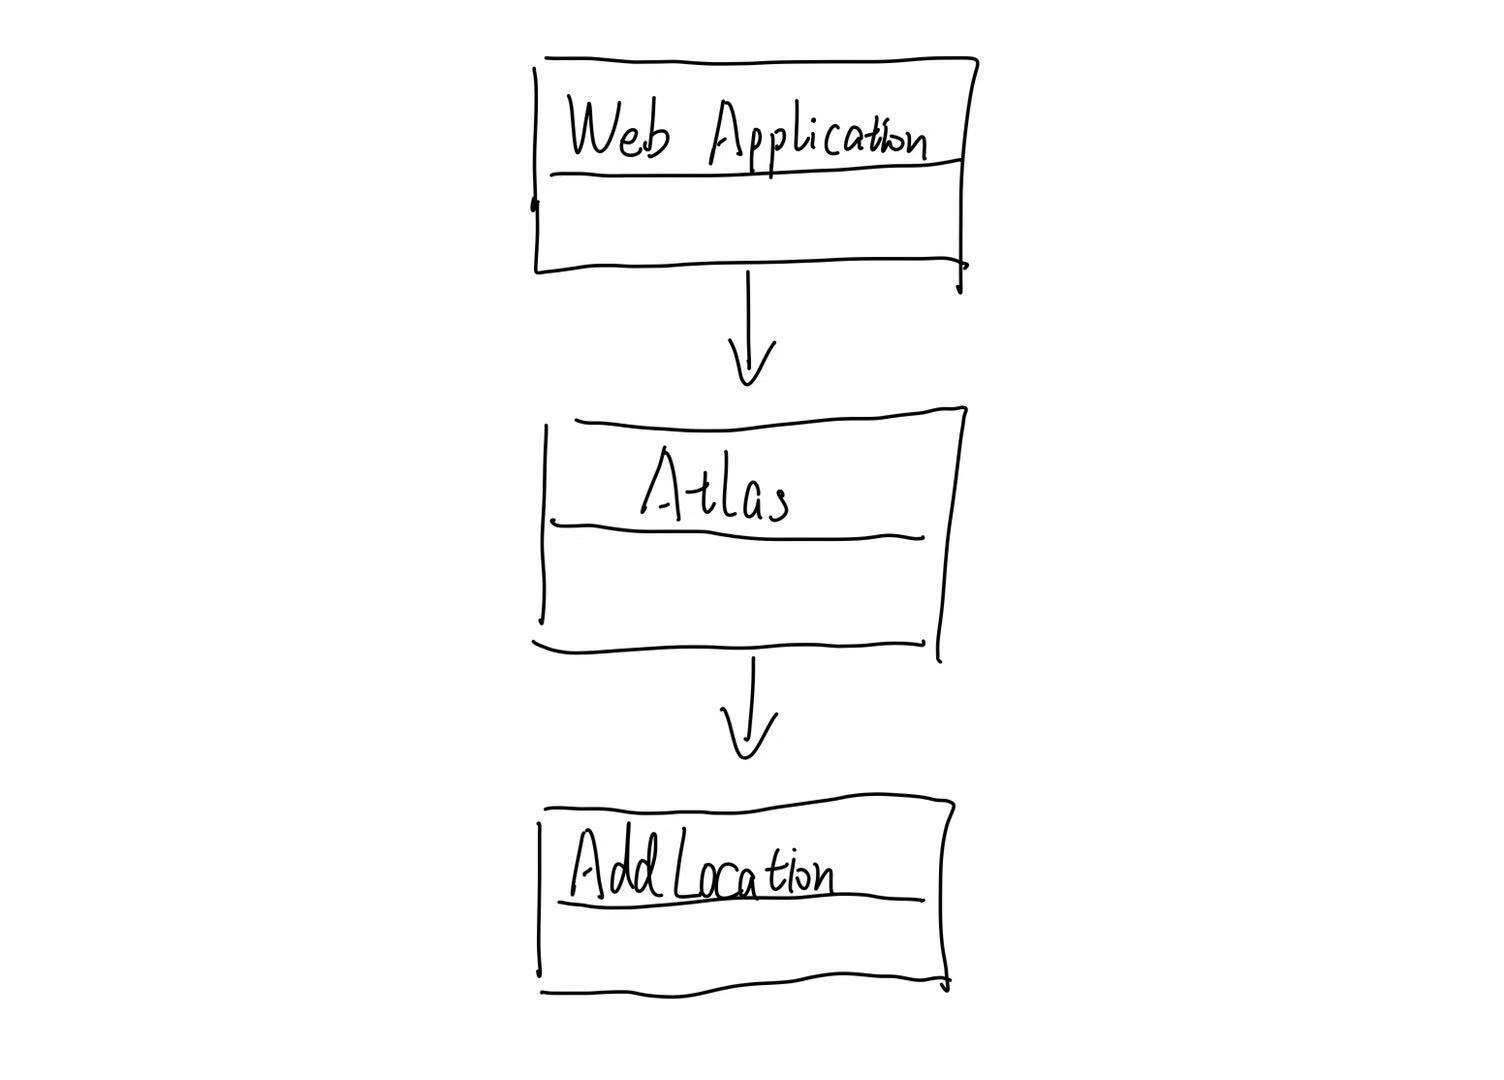 Web Application
Atlas
Add Location